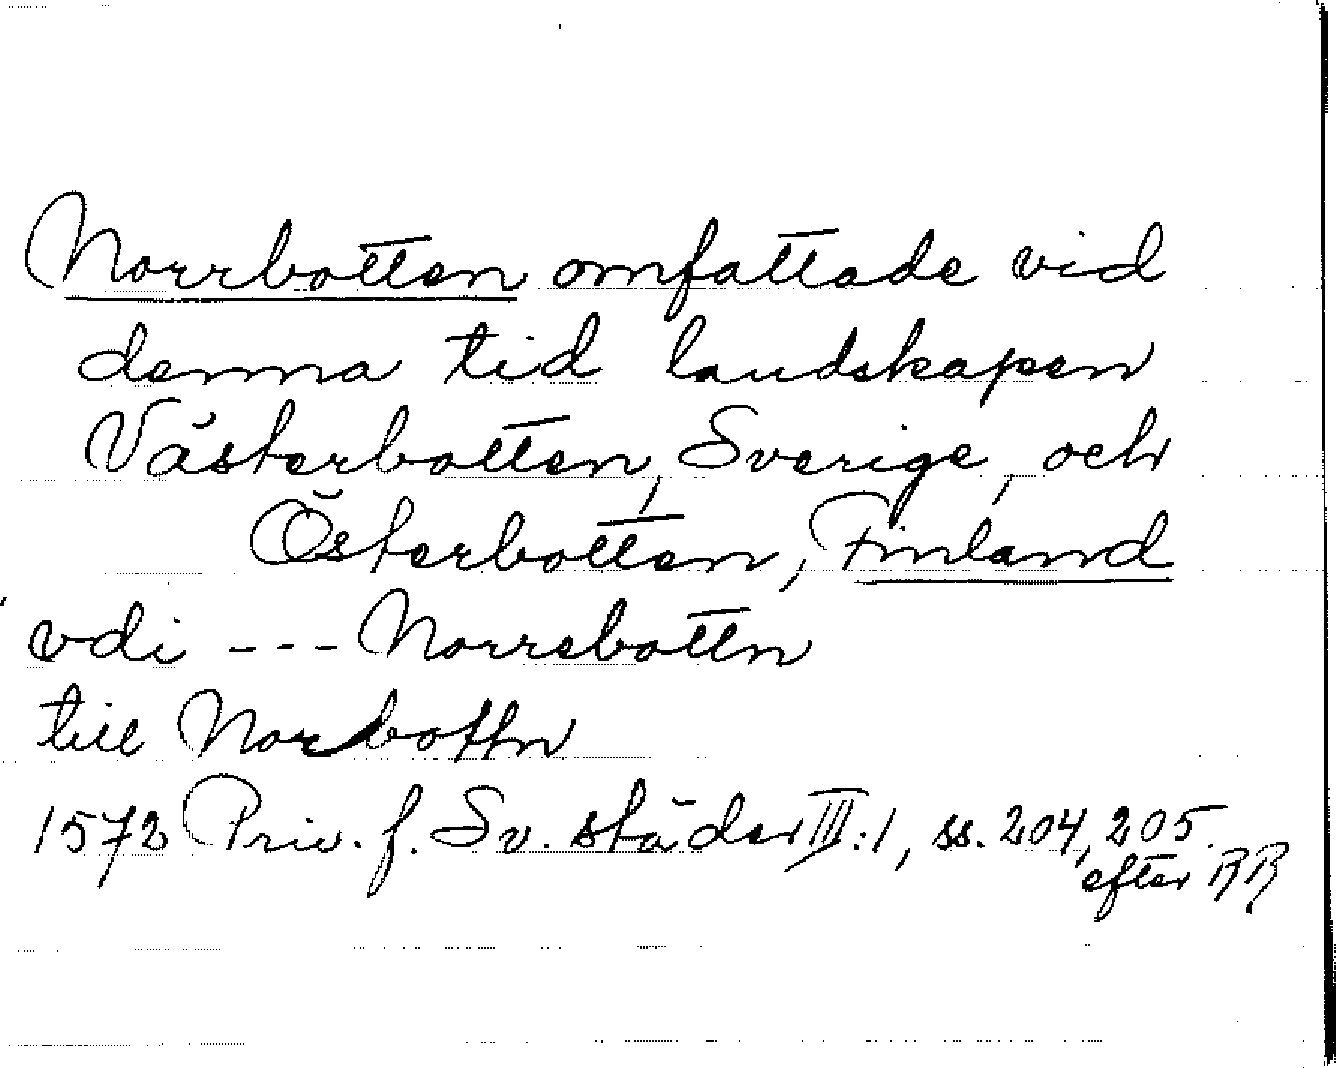 Norrbotten omfattade vid
denna tid landskapen
Västerbotten, Sverige, och
Österbotten, Finland
vdi --- Norrebottn
till Norbottn
1572 Priv. f. Sv. städer III:1, ss. 204, 205.
efter RR